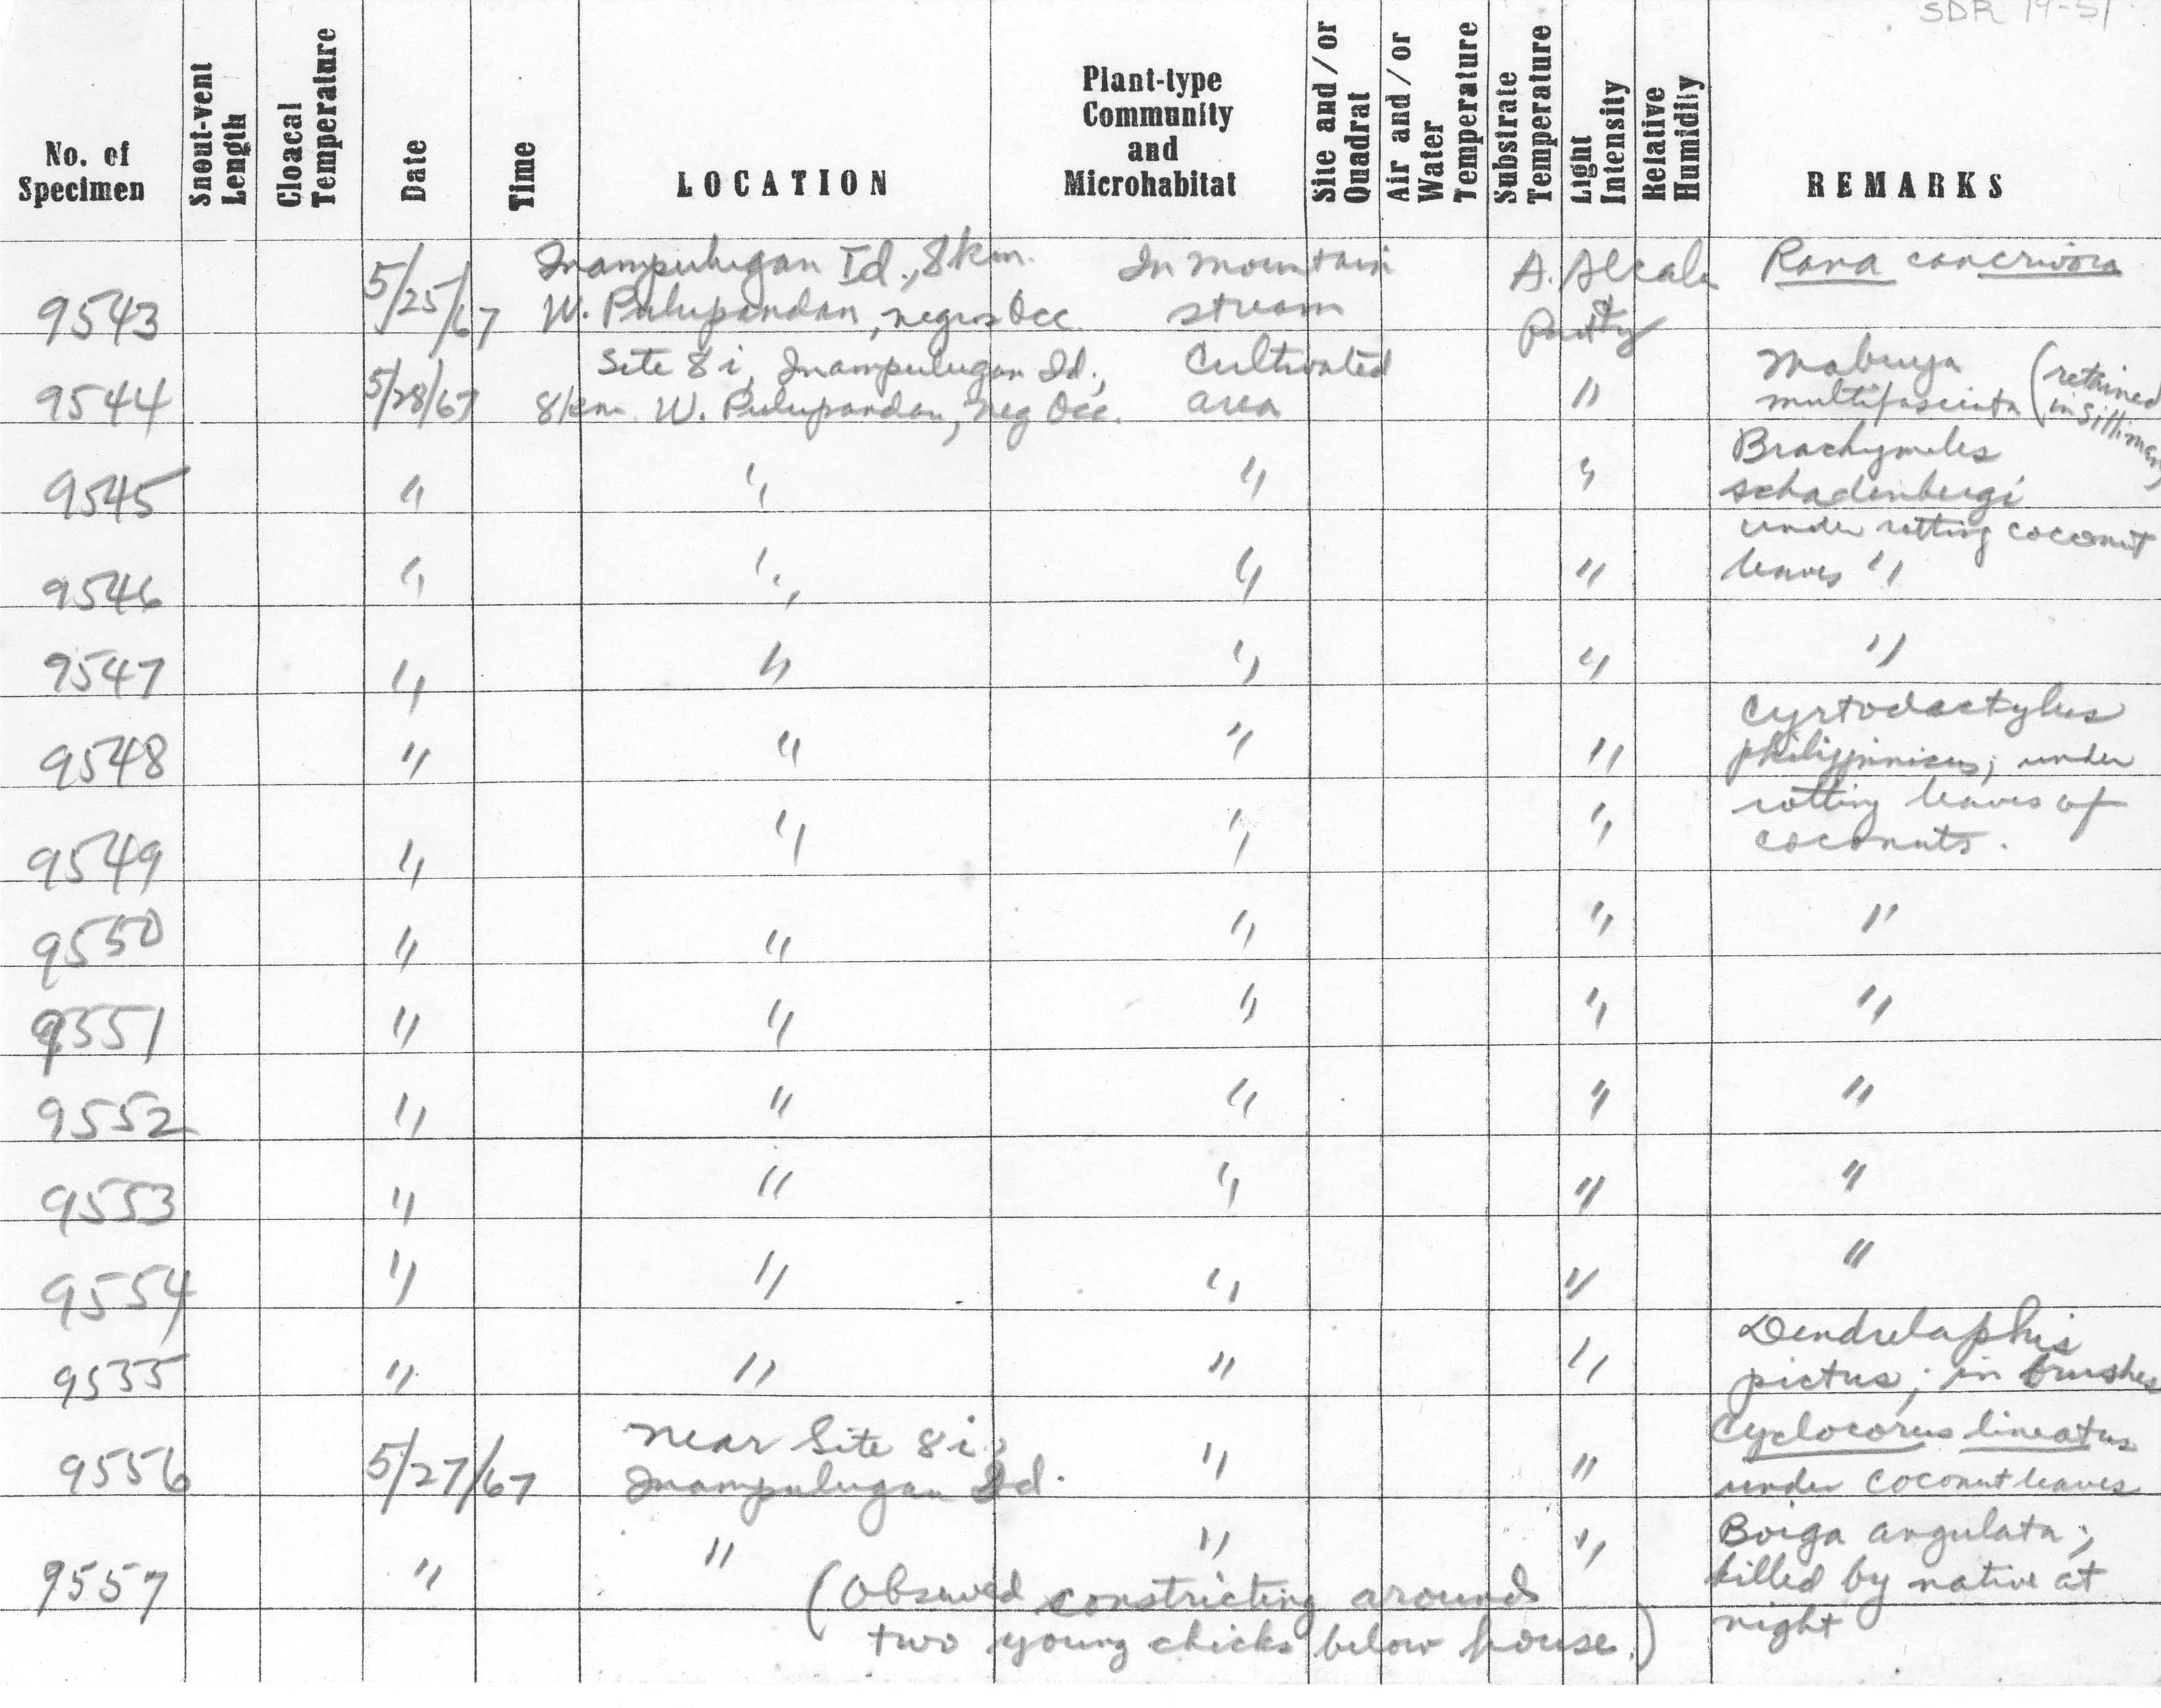 SDR 19-51
No. of Specimen
Snout-vent Length
Cloacal Temperature
Date
Time
LOCATION
Plant-type Community and Microhabitat
Site and/or Quadrat
Air and/or Water Temperature
Substrate Temperature
Light Intensity
Relative Humidity
REMARKS
9543 5/25/67 Inampulugan Id., 8 km. W. Pulupandan, Negros Occ. In mountain stream A. Alcala Party Rana cancrivora
9544 5/28/67 Site 8 i, Inampulugan Id., 8 km W. Pulupandan, Neg Occ. Cultivated area " Mabuya multifasciata (retained in Silliman)
9545 " " " " Brachymeles schadenbergi under rotting coconut leaves
9546 " " " " "
9547 " " " " "
9548 " " " " Cyrtodactylus philippinicus; under rotting leaves of coconuts.
9549 " " " "
9550 " " " " "
9551 " " " " "
9552 " " " " "
9553 " " " " "
9554 " " " " "
9555 " " " " Dendrelaphis pictus; in brushes
9556 5/27/67 Near Site 8 i, Inampulugan Id. " " Cyclocorus lineatus under coconut leaves
9557 " " " " Boiga angulata; killed by native at night
(Observed constricting around
two young chicks below house.)